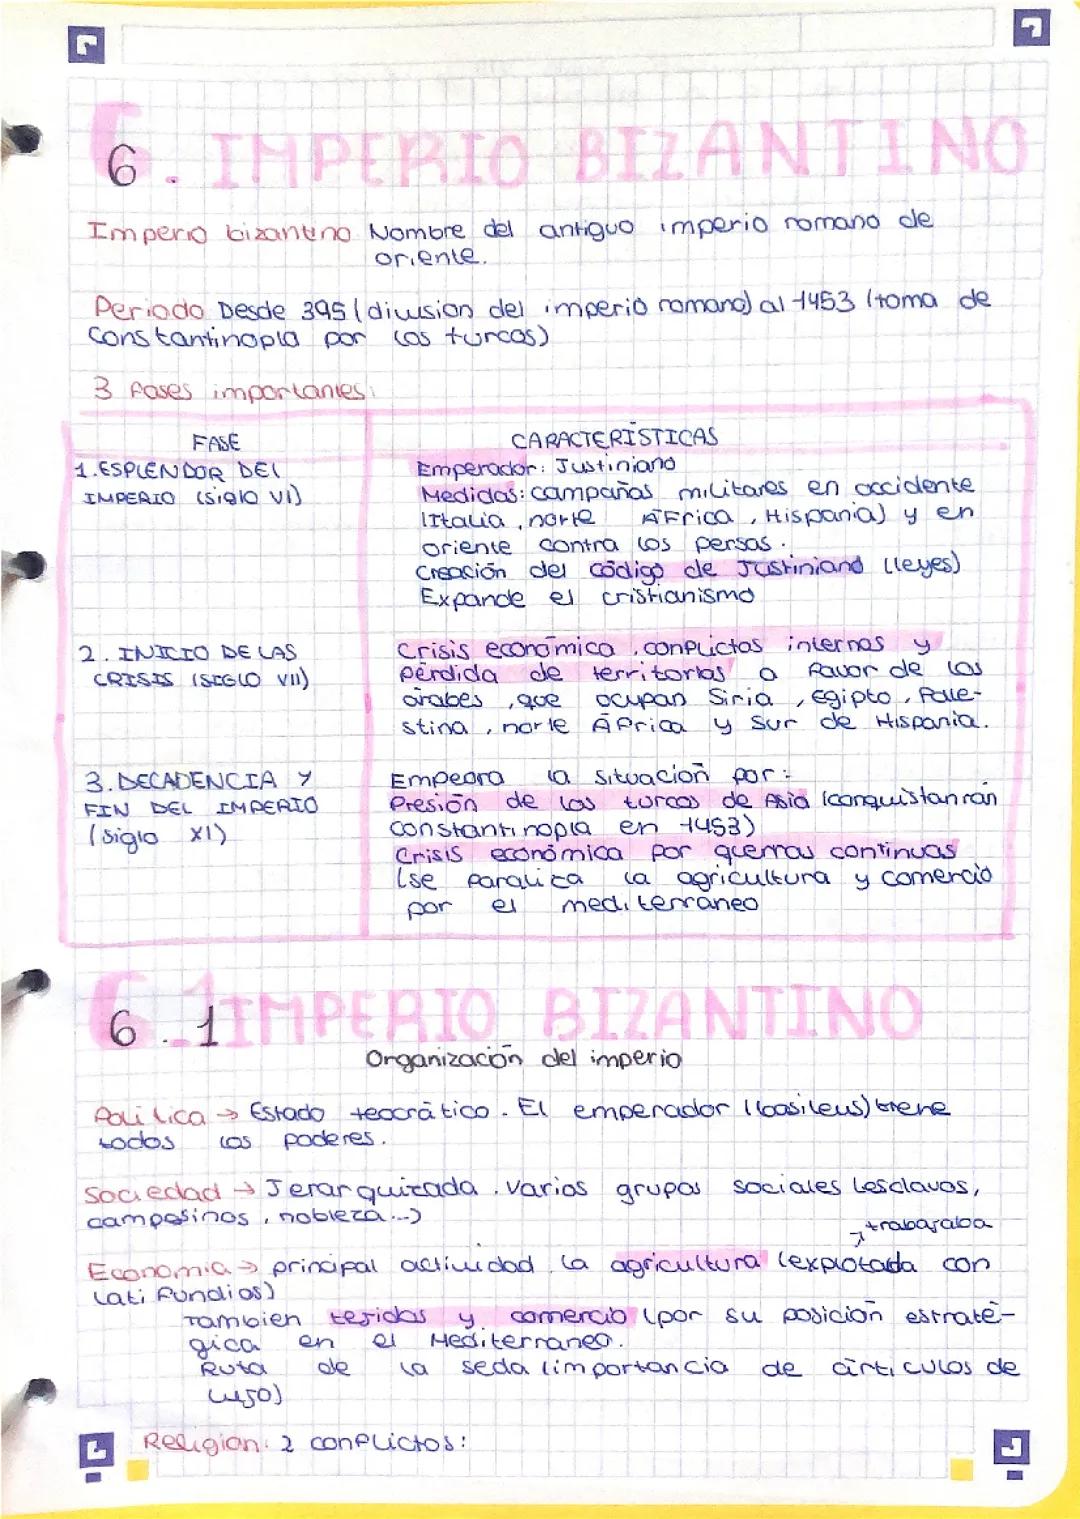 6. IMPERIO BIZANTINO
Imperio bizantino Nombre del antiguo imperio romano de
oriente.
Periodo Desde 395 (división del imperio romano) al 1453 (toma de
Constantinopla por los turcos)
3 fases importantes:
FASE
CARACTERÍSTICAS
1. ESPLENDOR DEL
IMPERIO (siglo VI)
Emperador: Justiniano
Medidas: campañas militares en occidente
(Italia, norte África, Hispania) y en
oriente contra los persas.
Creación del código de Justiniano (leyes)
Expande el cristianismo
2. INICIO DE LAS
CRISIS (SIGLO VII)
Crisis económica, conflictos internos y
pérdida de territorios a favor de los
árabes, que ocupan Siria, Egipto, Pale-
stina, norte África y sur de Hispania.
3. DECADENCIA Y
FIN DEL IMPERIO
(siglo XI)
Empeora la situación por:
Presión de los turcos de Asia (conquistanrán
Constantinopla en 1453)
Crisis económica por guerras continuas
(se paraliza la agricultura y comercio
por el mediterraneo
6.1 IMPERIO BIZANTINO
Organización del imperio
Política → Estado teocrático. El emperador (basileus) tiene
todos los poderes.
Sociedad → Jerarquizada. varios grupos sociales (esclavos,
campesinos, nobleza...)
trabajaba
Economia → principal actividad la agricultura (explotada con
latifundios)
Tambien tejidos y comercio (por su posición estraté-
gica en el Mediterraneo.
Ruta de la seda (importancia de artículos de
lujo)
Religion: 2 conflictos: